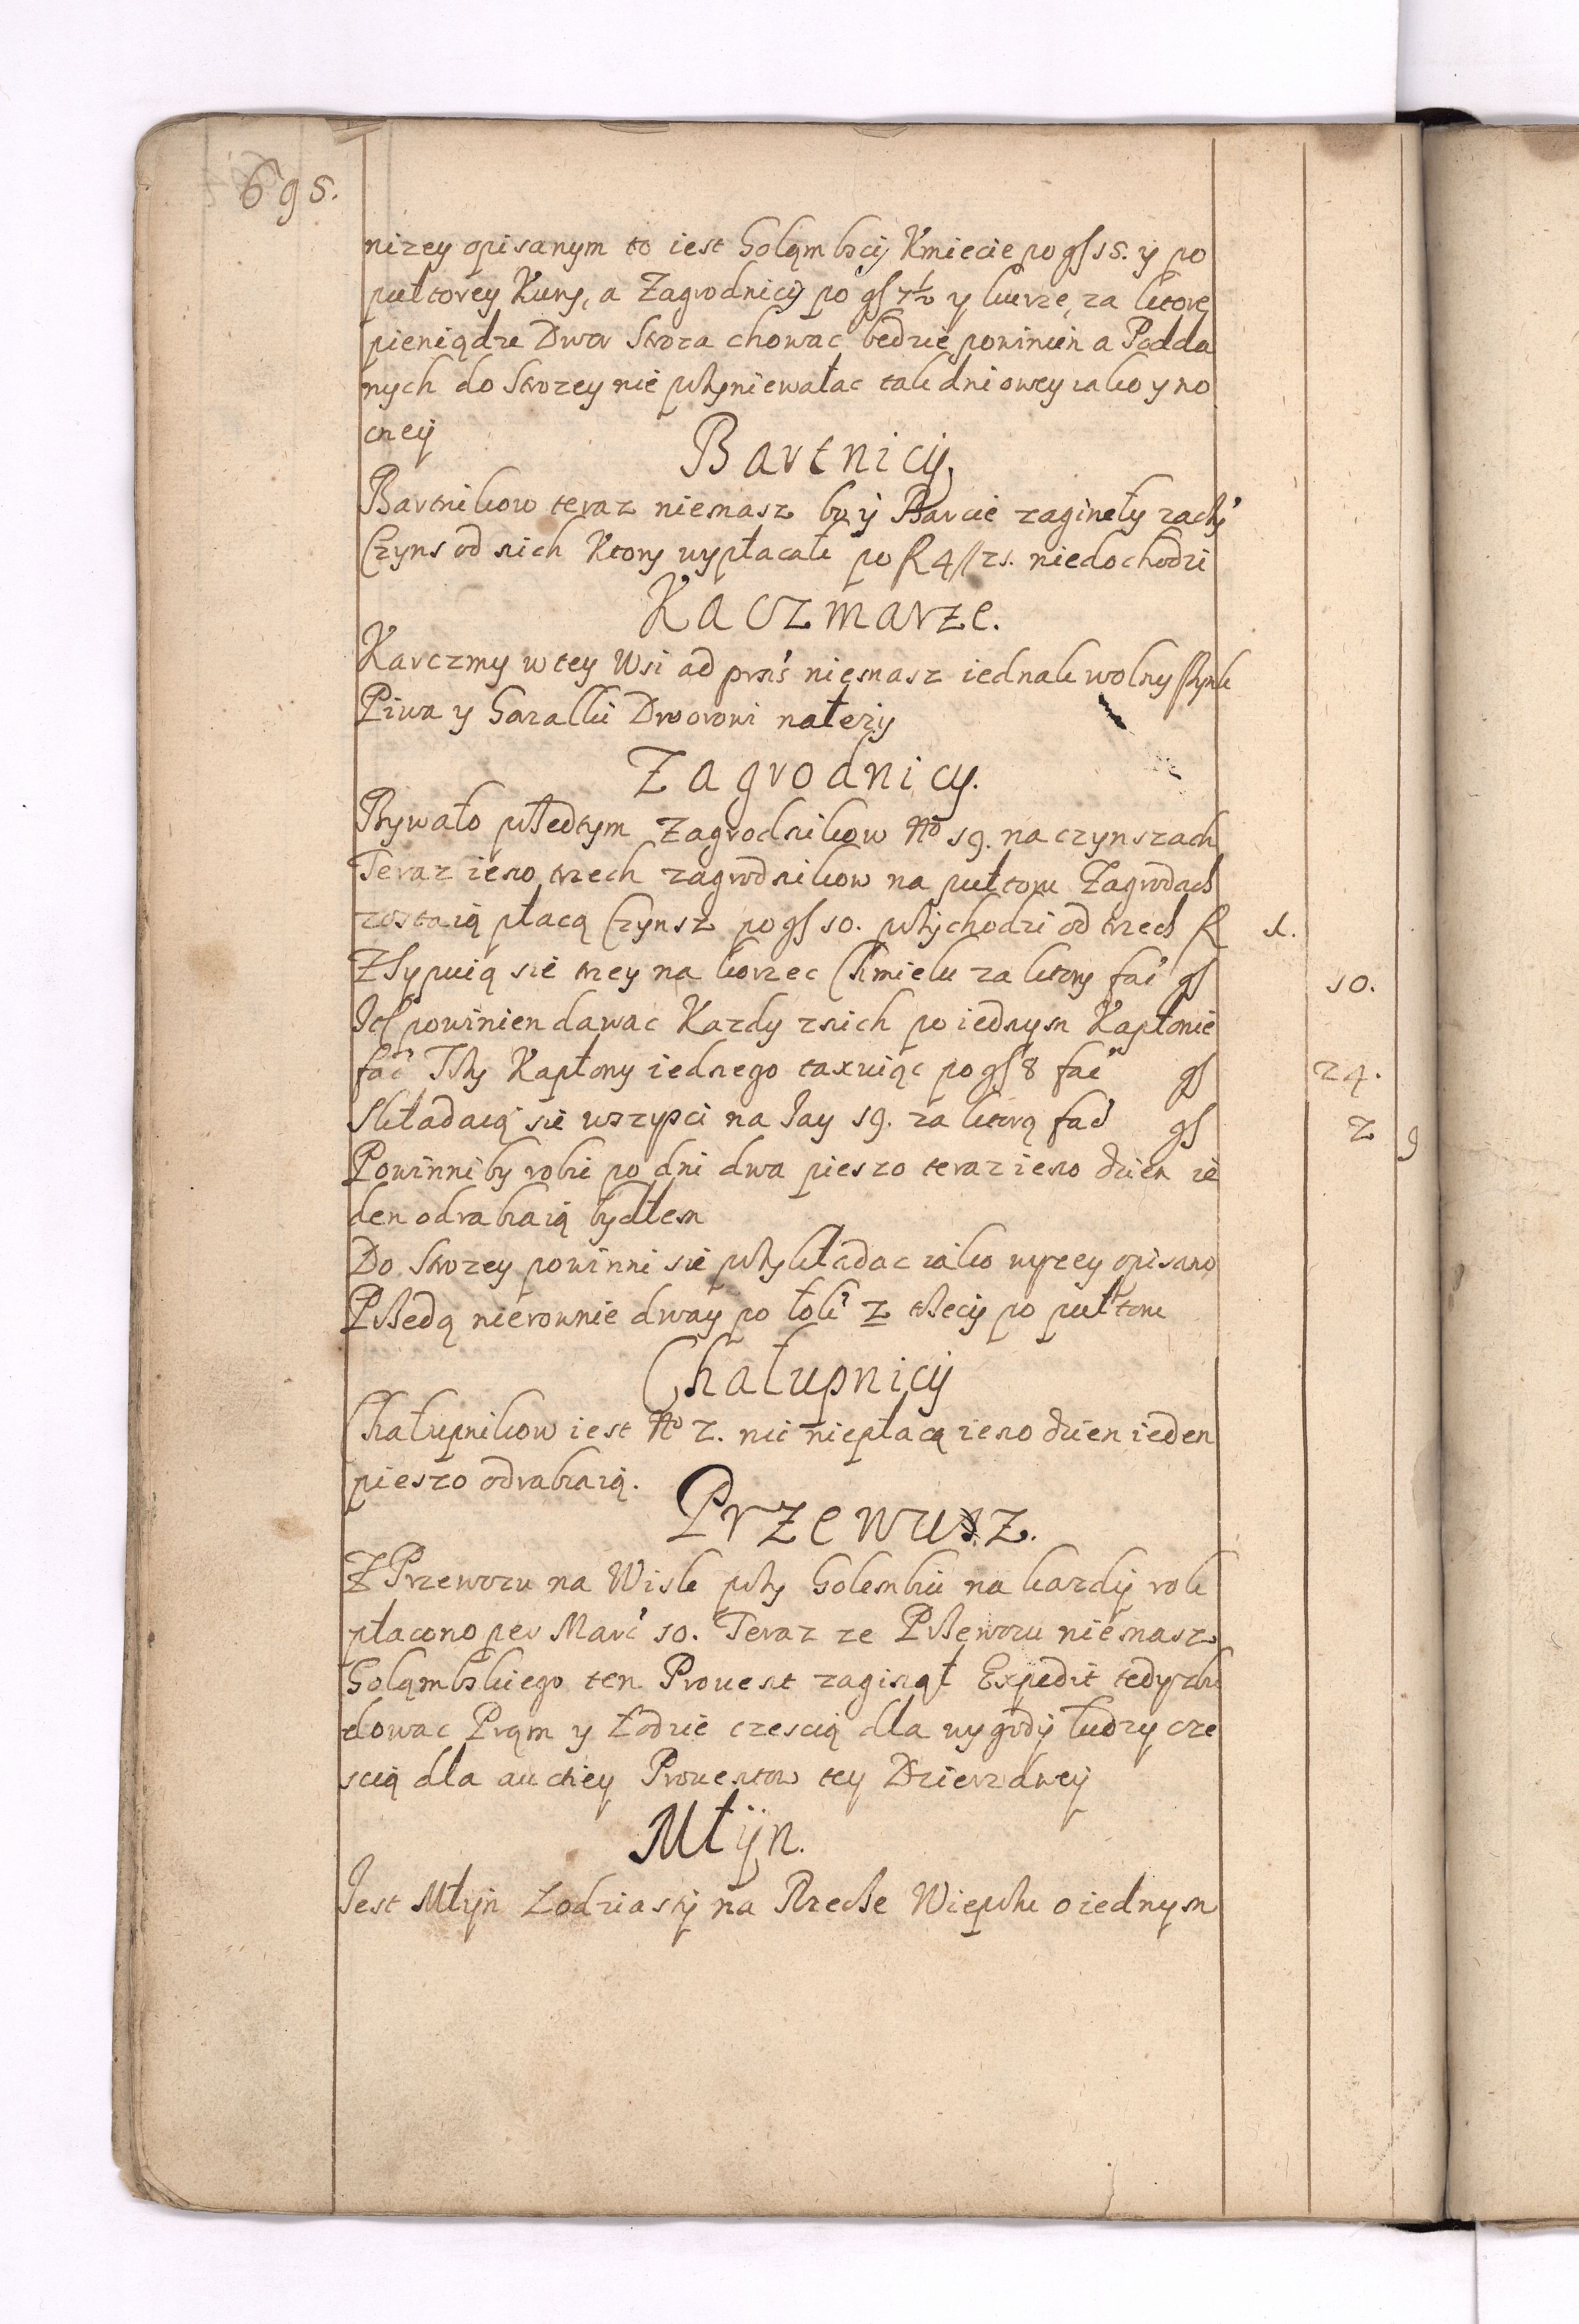 695.
nizey opisanym to iest Gołąmbscij Kmiecie po gſ 15. y po
pułtorey Kury, a Zagrodnicij po gſ 7½ y kurze, za ktore
pieniądze Dwor Stroza chowac będzie powinien a Podda
nych do Strozey nie przyniewałac tak dniowey iako y no
cney
Bartnicij
Bartnikow teraz niemasz bo y Barcie zagineły zaczy
Czyns od nich Ktory wypłacałi po R 4 // 21. niedochodzi
Kaczmarze.
Karczmy w tey Wsi ad pnś niemasz iednak wolny szynk
Piwa y Gorzałki Dworowi nałezy
Zagrodnicy.
Bywało przedtym Zagrodnikow No 19. na czynszach
Teraz ieno trzech zagrodnikow na pułtoru Zagrodach
zostaią płacą Czynsz po gſ 10. przychodzi od trzech R 1.
Zsypuią się trzey na korzec Chmielu za ktory fać gſ 10.
It powinien dawac Kazdy znich po iednym Kapłonie
fać Trzy Kapłony iednego taxuiąc po gſ 8 fać gſ 24.
Składaią się wszyści na Jay 19. za ktorą fać gſ 2 9
Powinni by robic po dni dwa pieszo teraz ieno dzien ie
den odrabiaią bydłem
Do Strozey powinni się przykładac iako wyzey opisano
Przedą nierownie dway po łok 2 trzeci po pułtoru
Chałupnicij
Chałupnikow iest No 2. nic niepłacą ieno dzien ieden
pieszo odrabiaią.
Przewusz.
Z Przewozu na Wiśle przy Golembiu na kazdij rok
płacono per Marć 10. Teraz ze Przewozu niemasz
Gołąmbskiego ten Prouent zaginął Expedit tedy zbu
dowac Prąm y Łodzie częscią dla wygody ludzy czę
scią dla auctiey Prouentow tey Dzierzawy
Młÿn.
Jest Młyn Łodziastÿ na Rzecze Wieprzu o iednym